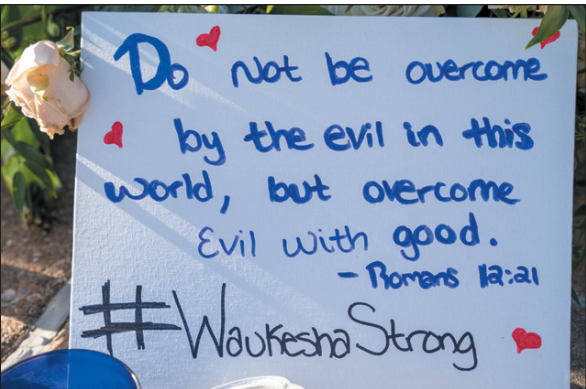 Do not be overcome
by the evil in this
world, but overcome
Evil with good.
- Romans 12:21
#WaukeshaStrong